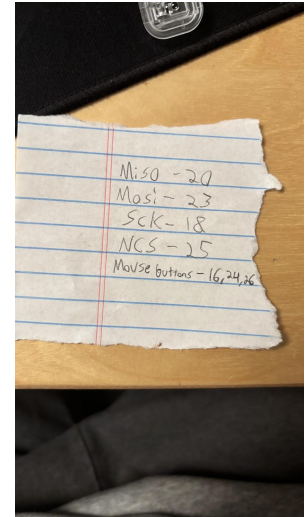 Miso - 20
Mosi - 23
SCK - 18
NCS - 25
Mouse buttons - 16, 24, 26